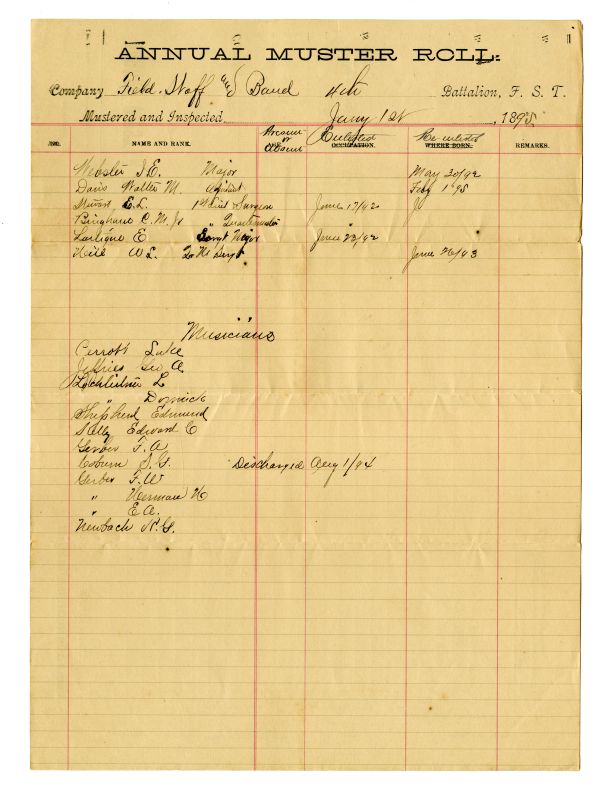 ANNUAL MUSTER ROLL:
Company Field. Staff and Band 4th Battalion, F. S. T.
Mustered and Inspected Jany 1st, 1895
NO. NAME AND RANK. Present or Absent AGE Enlisted OCCUPATION. Re-enlisted WHERE BORN. REMARKS.
Webster J. E. Major May 30/92
Davis Walter M. Adjutant Feby 1st 95
Stewart E. L. 1st Lieut Surgeon June 17/92
Bingham C. M. Jr " Quartermaster
Lartigue E Sergt Major June 23/92
Hill W L. Q M Sergt June 26/93
Musicians
Luke
Jeffries Geo A
L
" Dominick
Shepherd Edmund
Edward C
Gerber F. A
Coburn S. G. Discharged Aug 1/94
Gerber F. W
" Herman H
" E A.
Neubach N. G.